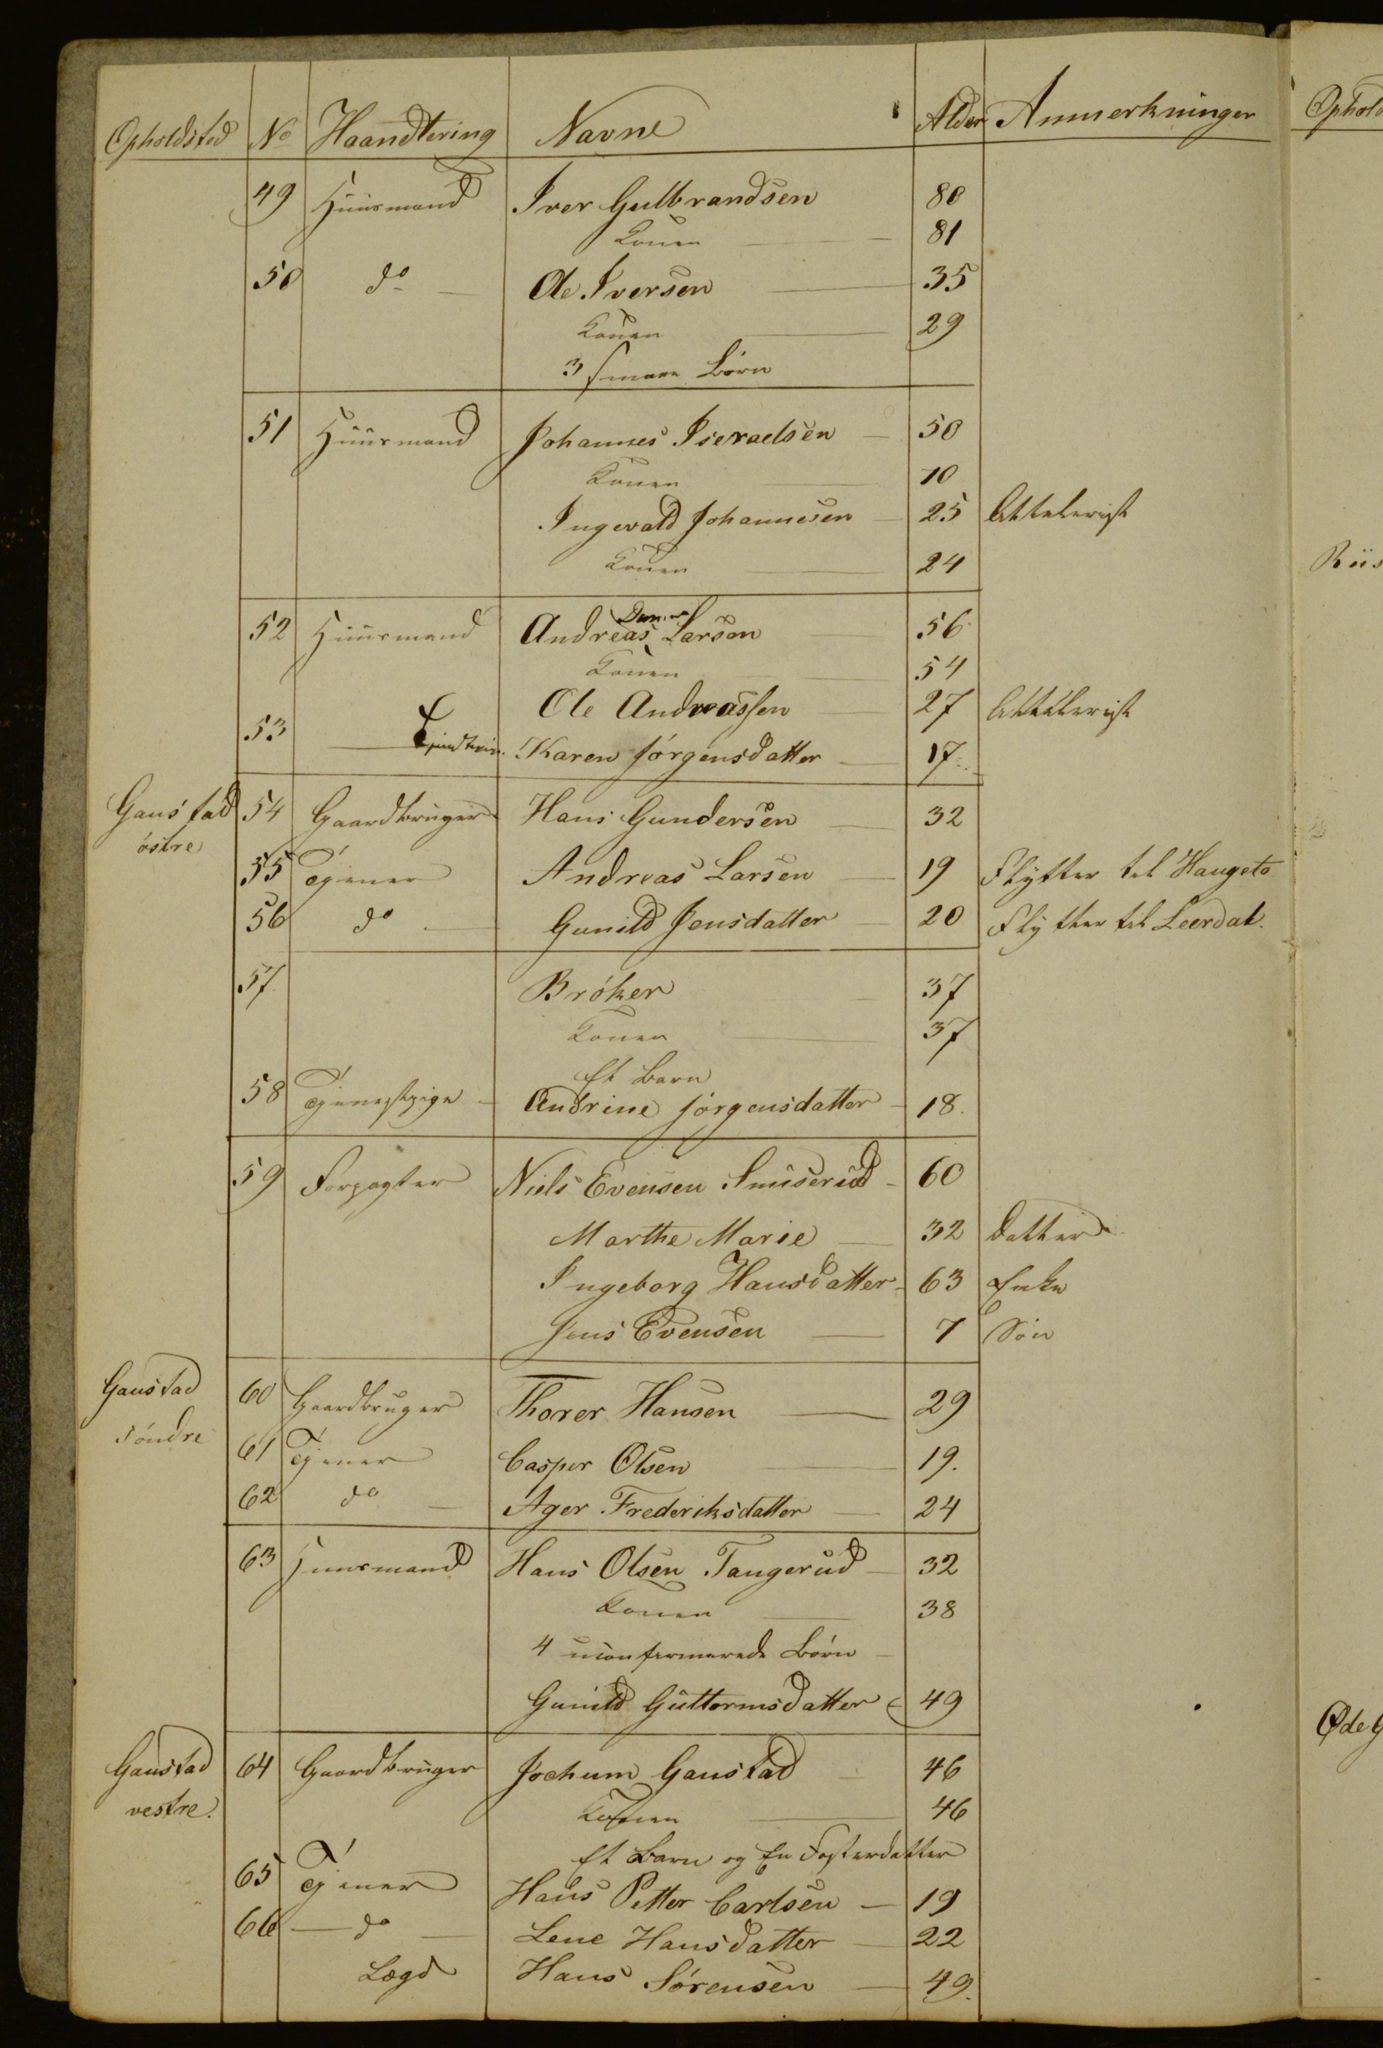 Opholdsted No Haandtering Navne Alder Anmerkninger
49 Huusmand Iver Gulbrandsen 80
Konen 81
50 do Ole Iversen 35
Konen 29
3 smaae Børn
51 Huusmand Johannes Iseraelsen 50
Konen 70
Ingevald Johannesen 25 Attelerist
Konen 24
52 Huusmand Andreas Larsen 56
Konen 54
Ole Andreassen 27 Attelerist
53 Karen Jørgensdatter 17
Gaustad 54 Gaardbruger Hans Gundersen 32
østre
55 Tjener Andreas Larsen 19 Flytter til Haugsto
56 do Gunild Jensdatter 20 Flytter til Leerdal.
57 Brøker 37
Konen 37
Et Barn
58 Tjenestpige Andrine Jørgensdatter 18.
59 Forpagter Niels Evensen Smuserud 60
Marthe Marie 32 Datter
Ingeborg Hansdatter 63 Enke
Jens Evensen 7 Søn
Gaustad 60 Gaardbruger Thorer Hansen 29
søndre
61 Tjener Casper Olsen 19.
62 do Ager Frederiksdatter 24
63 Huusmand Hans Olsen Tangerud 32
Konen 38
4 uconfirmerede Børn
Gunild Guttormsdatter 49
Gaustad 64 Gaardbruger Jochum Gaustad 46
vestre. Konen 46
Et Barn og En Fosterdatter
65 Tjener Hans Petter Carlsen 19
66 do Lene Hansdatter 22
Lægd Hans Sørensen 49.
Ophold
Riis
Øde G